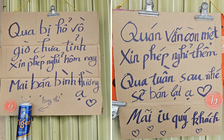 Qua bị hổ vồ
giờ chưa tỉnh
Xin phép nghỉ hôm nay
Mai bán bình thường
ạ
Quán vẫn còn mệt
Xin phép nghỉ thêm
Qua tuần sau nhé
sẽ bán lại ạ
Mãi iu quý khách